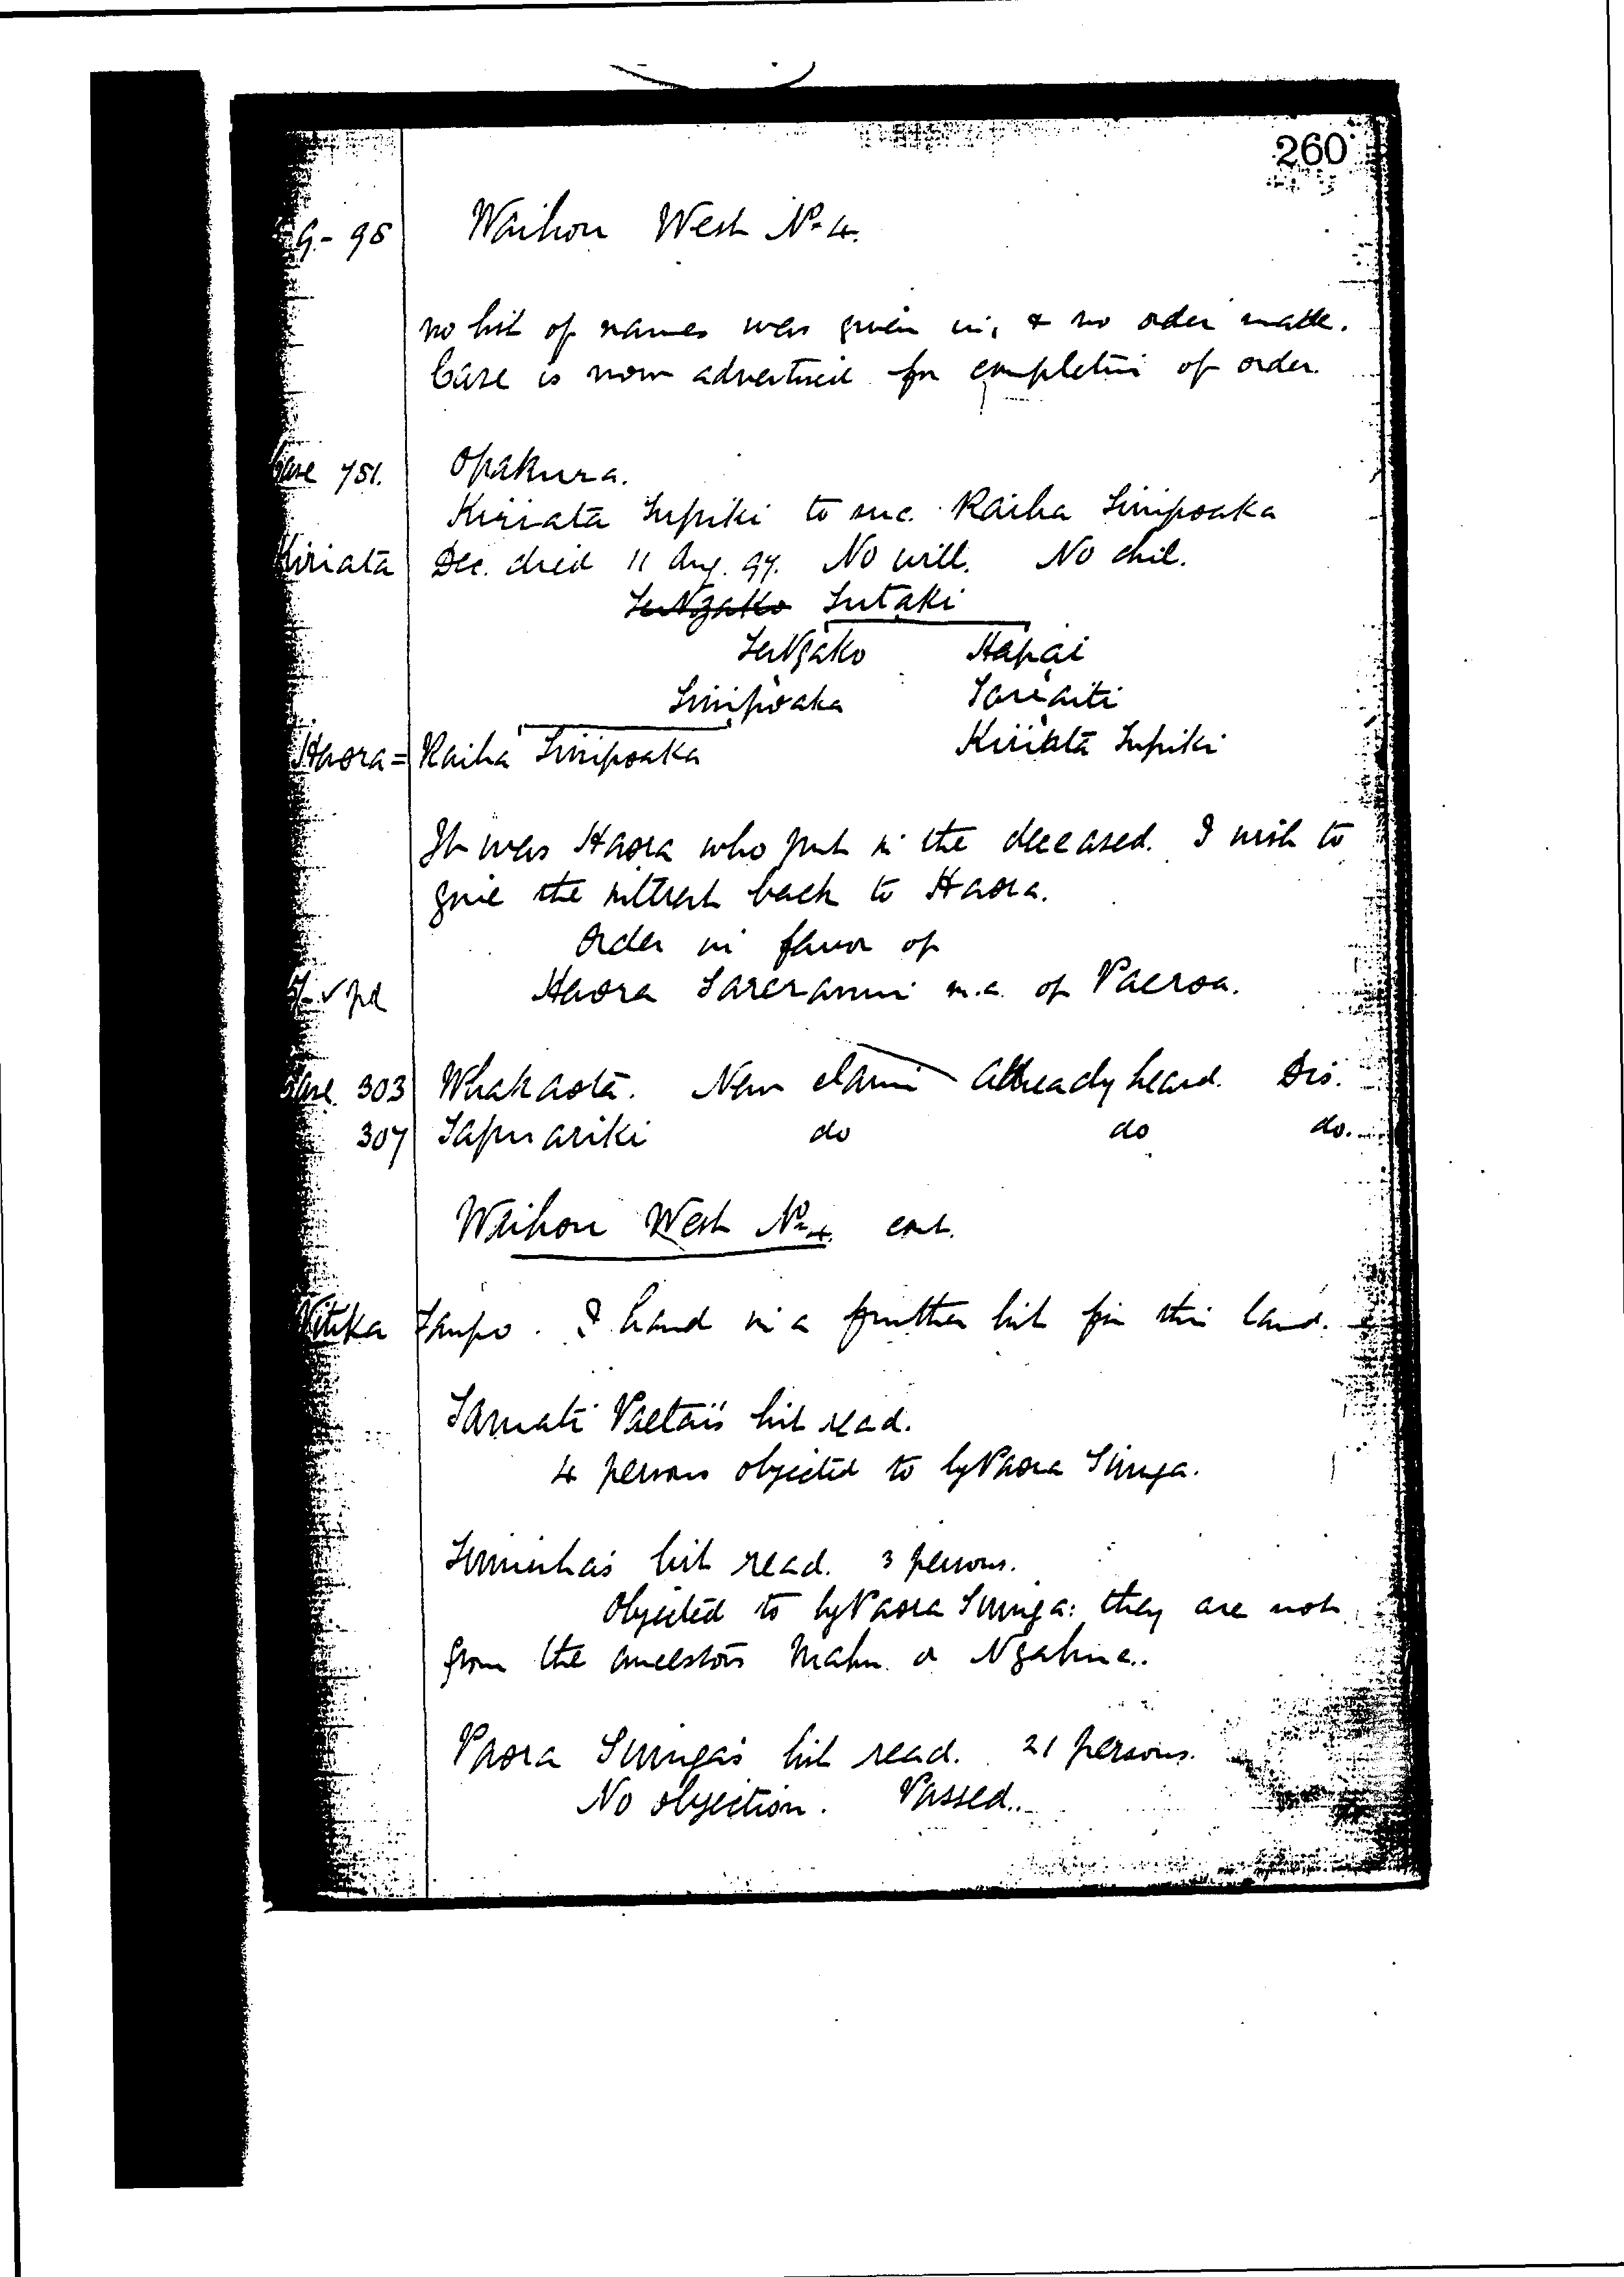 260
9.- 98 Waihou West No 4.
no list of names was given in, & no order made.
Case is now advertised for completion of order.
Case 751. Opakura.
Kiriata Tupiki to suc. Raiha Tinipoaka
Kiriata Dec. died 11 Aug. 97. No will. No chil.
TeNgako Tutaki
TeNgako Hapai
Tinipoaka Tareaiti
Haora = Raiha Tinipoaka Kiriata Tupiki
It was Haora who put in the deceased. I wish to
give the interest back to Haora.
Order in favor of
5/- ✓ pd Haora Tareranui m.a. of Paeroa.
Case 303 Whakaota. New claim Already heard. Dis.
307 Tapuariki do do do.
Waihou West No 4. cont.
Pitika Taupo. I hand in a further list for this land.
Tamati Paetai's list read.
4 persons objected to by Paora Tiunga.
list read. 3 persons.
Objected to by Paora Tiunga: they are not
from the ancestors Mahu or Ngahua.
Paora Tiunga's list read. 21 persons.
No objection. Passed.